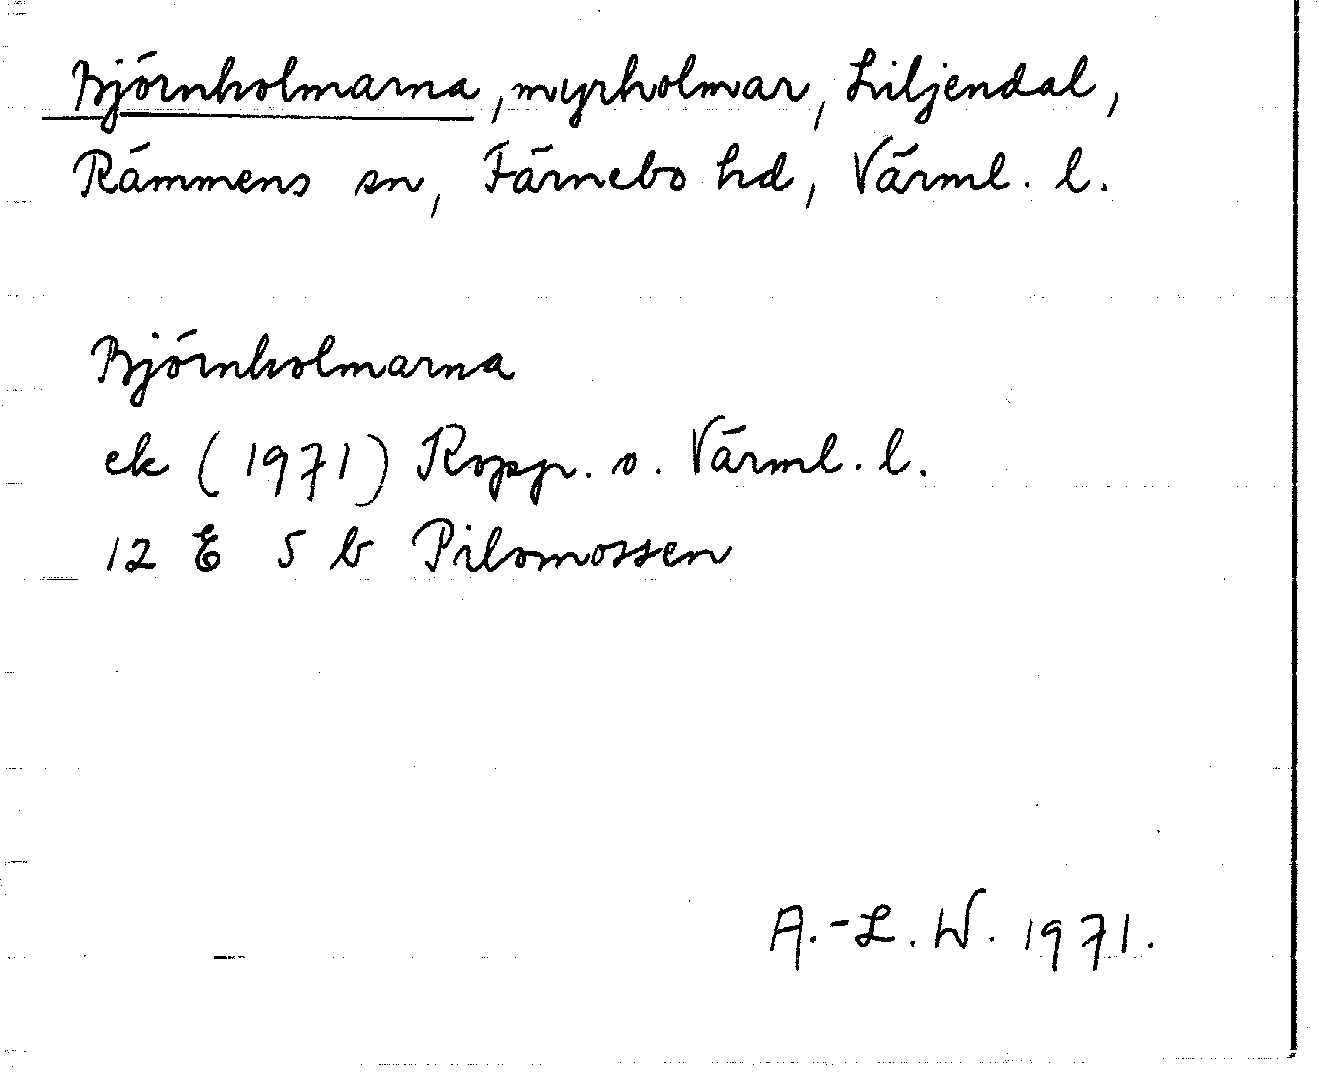 Björnholmarna, myrholmar, Liljendal,
Rämmens sn, Färnebo hd, Värml. l.
Björnholmarna
ek (1971) Kopp. o. Värml. l.
12 E 5 b Pilsmossen
A.-L. W. 1971.